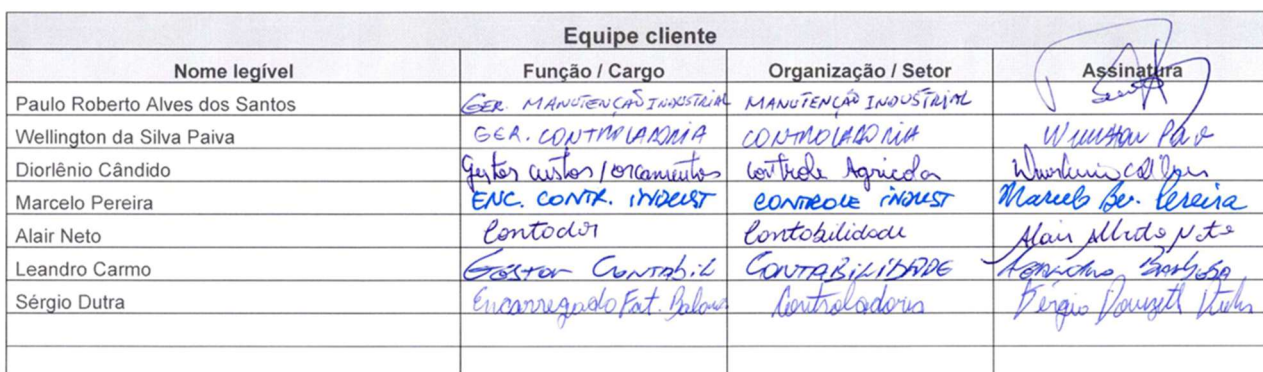 Equipe cliente
Nome legível Função / Cargo Organização / Setor Assinatura
Paulo Roberto Alves dos Santos GER. MANUTENÇÃO INDUSTRIAL MANUTENÇÃO INDUSTRIAL
Wellington da Silva Paiva GER. CONTROLADORIA CONTROLADORIA
Diorlênio Cândido Gestor custos / orcamentos controle Agricola
Marcelo Pereira ENC. CONTR. INDUST CONTROLE INDUST Marcelo Ber. Pereira
Alair Neto Contador Contabilidade Alair Alfredo Neto
Leandro Carmo GESTOR CONTÁBIL CONTABILIDADE Barbosa
Sérgio Dutra Encarregado Fat. Controladoria Sérgio Dutra